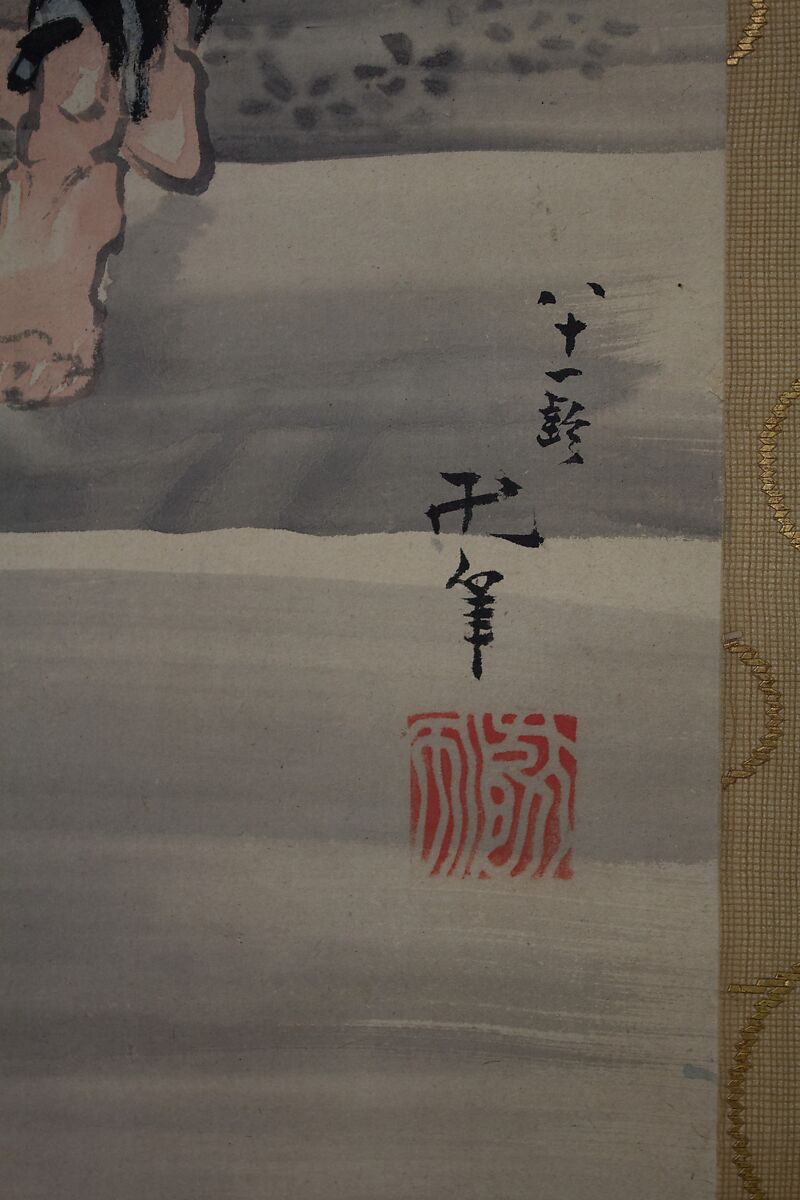 八十一齢
卍筆